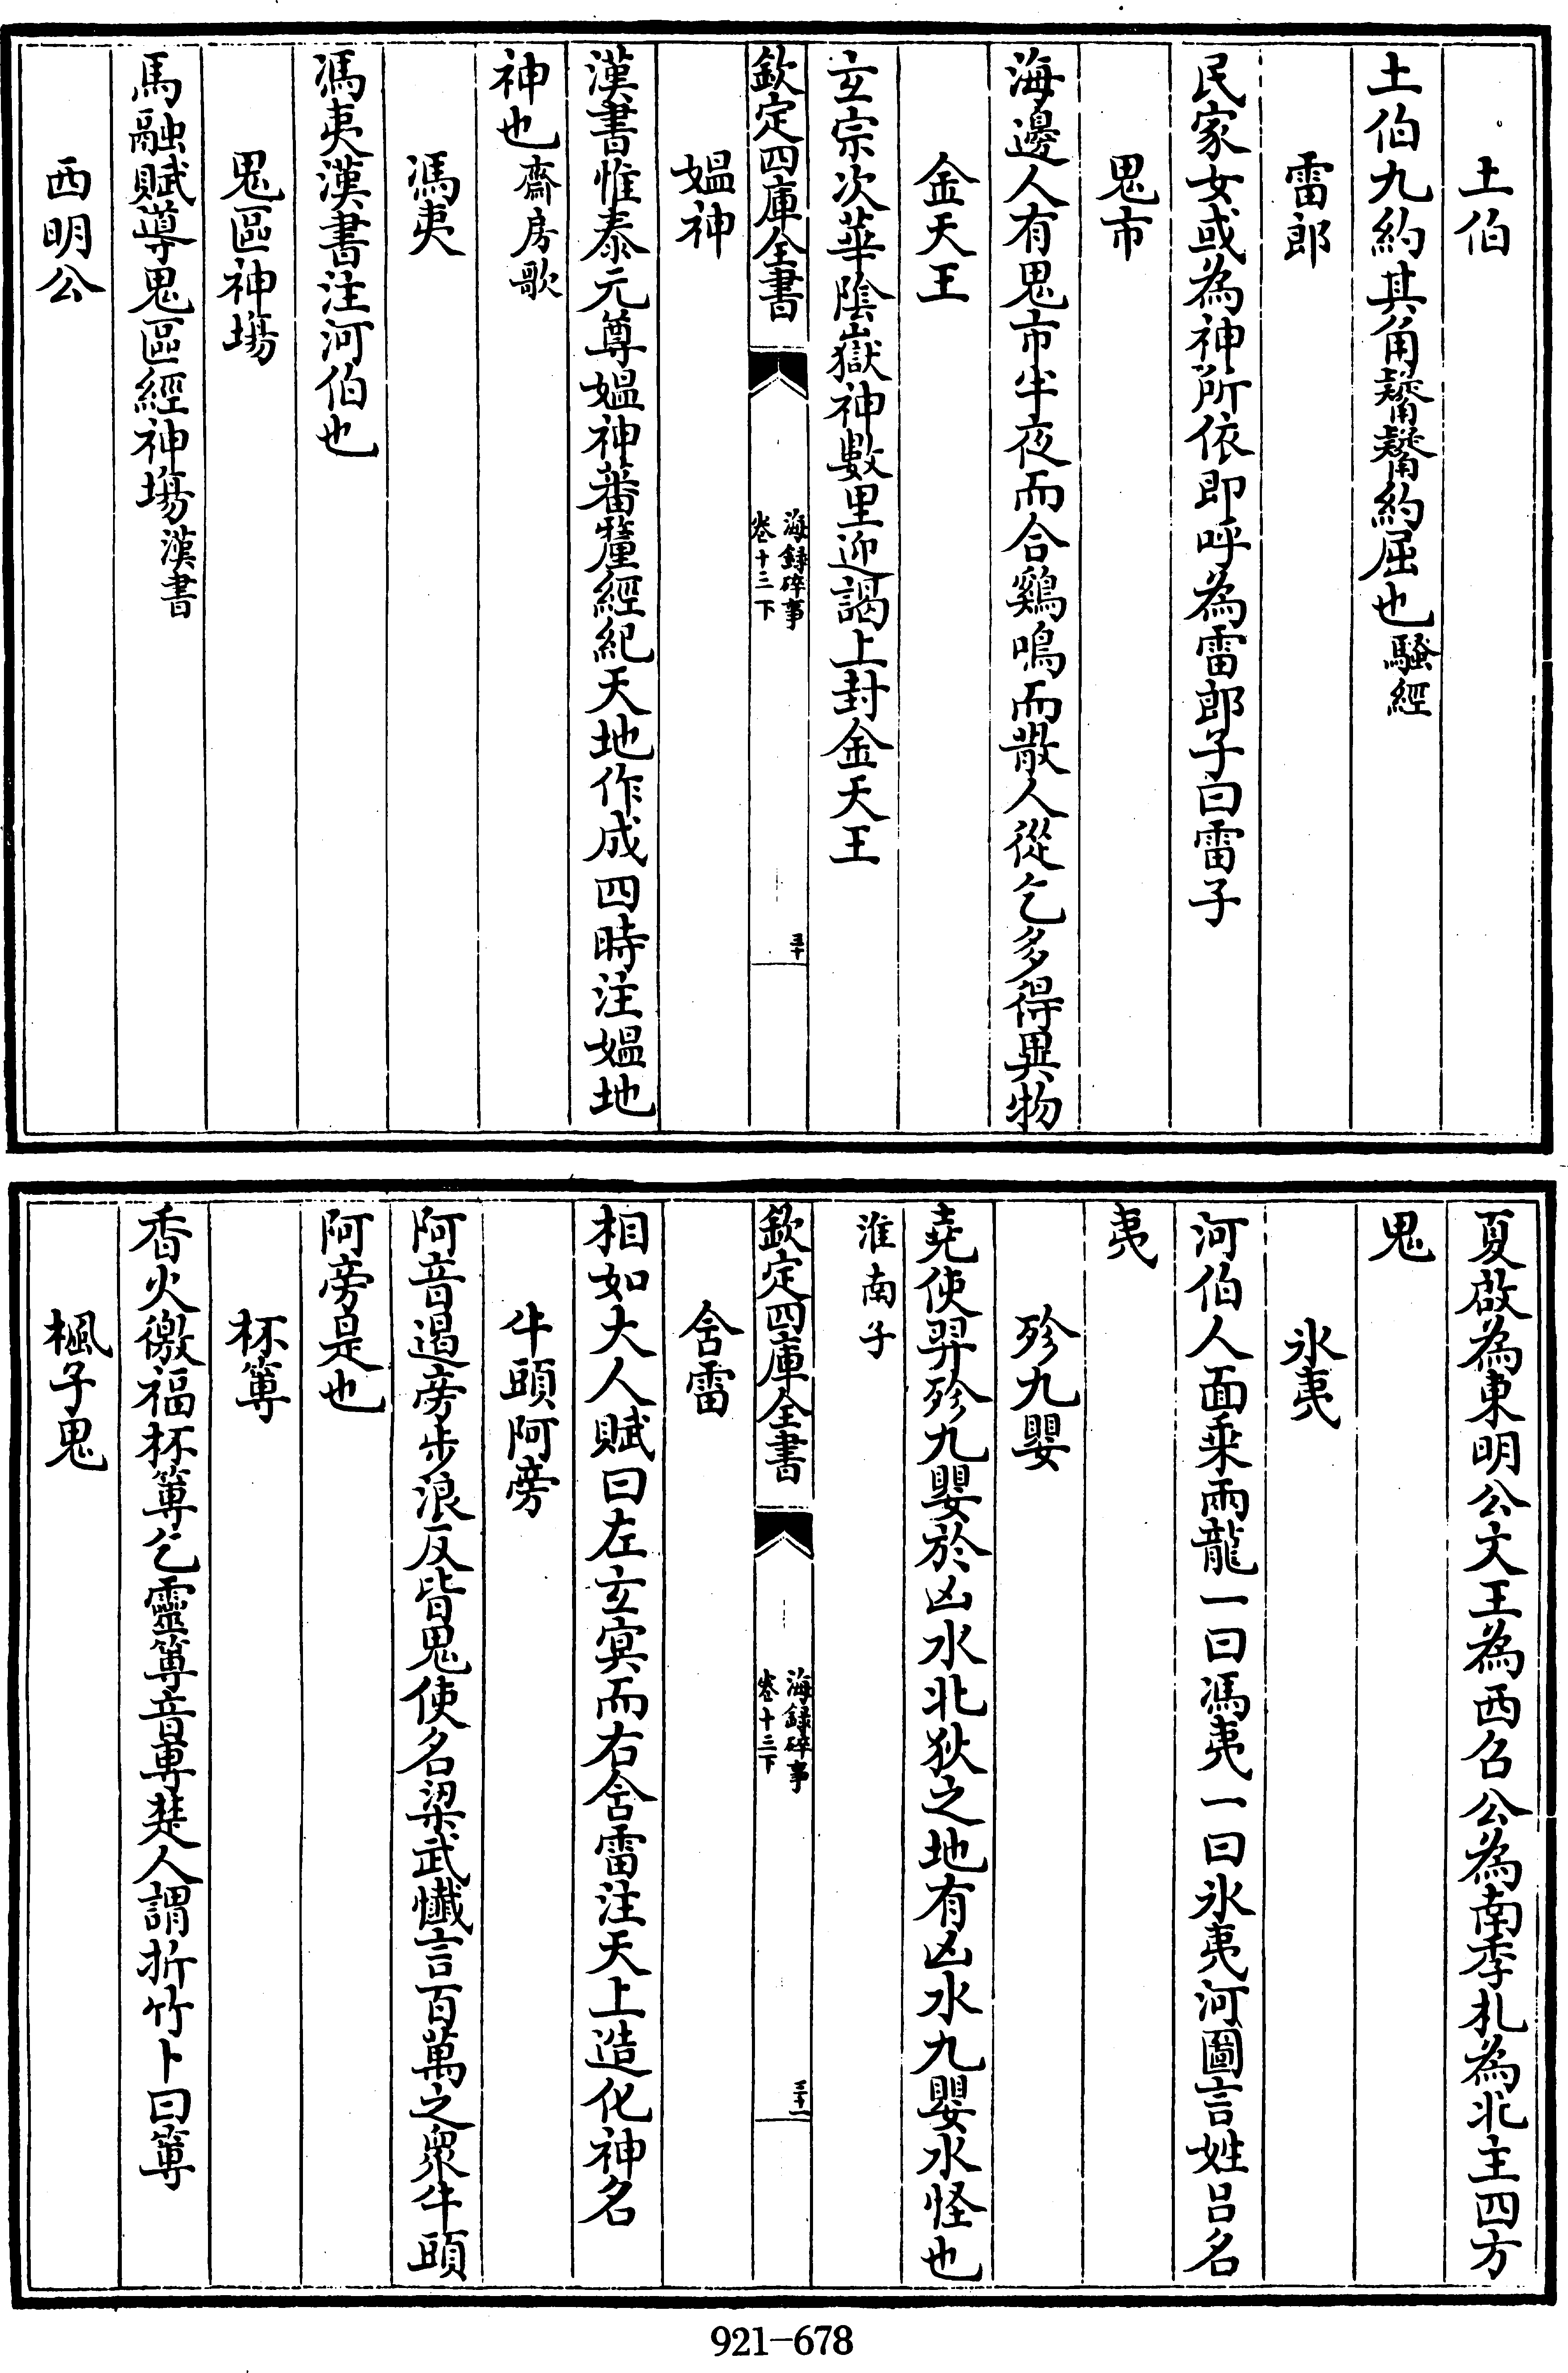 土伯
土伯九約其角觺觺約屈也騷經
雷郎
民家女或為神所依即呼為雷郎子曰雷子
鬼市
海邊人有鬼市半夜而合鷄鳴而散人從乞多得異物
金天王
玄宗次華陰嶽神數里迎謁上封金天王
欽定四庫全書
海録碎事
卷十三下
三十
媪神
漢書惟泰元尊媪神蕃釐經紀天地作成四時注媪地
神也齋房歌
馮夷
馮夷漢書注河伯也
鬼區神塲
馬融賦導鬼區經神塲漢書
西明公
夏啟為東明公文王為西召公為南季札為北主四方
鬼
氷夷
河伯人面乘兩龍一曰馮夷一曰氷夷河圖言姓呂名
夷
殄九嬰
堯使羿殄九嬰於凶水北狄之地有凶水九嬰水怪也
淮南子
欽定四庫全書
海録碎事
卷十三下
三十一
含雷
相如大人賦曰左玄㝠而右含雷注天上造化神名
牛頭阿旁
阿音遏旁步浪反皆鬼使名梁武懴言百萬之衆牛頭
阿旁是也
杯篿
香火徼福杯篿乞靈篿音專楚人謂折竹卜曰篿
楓子鬼
921-678